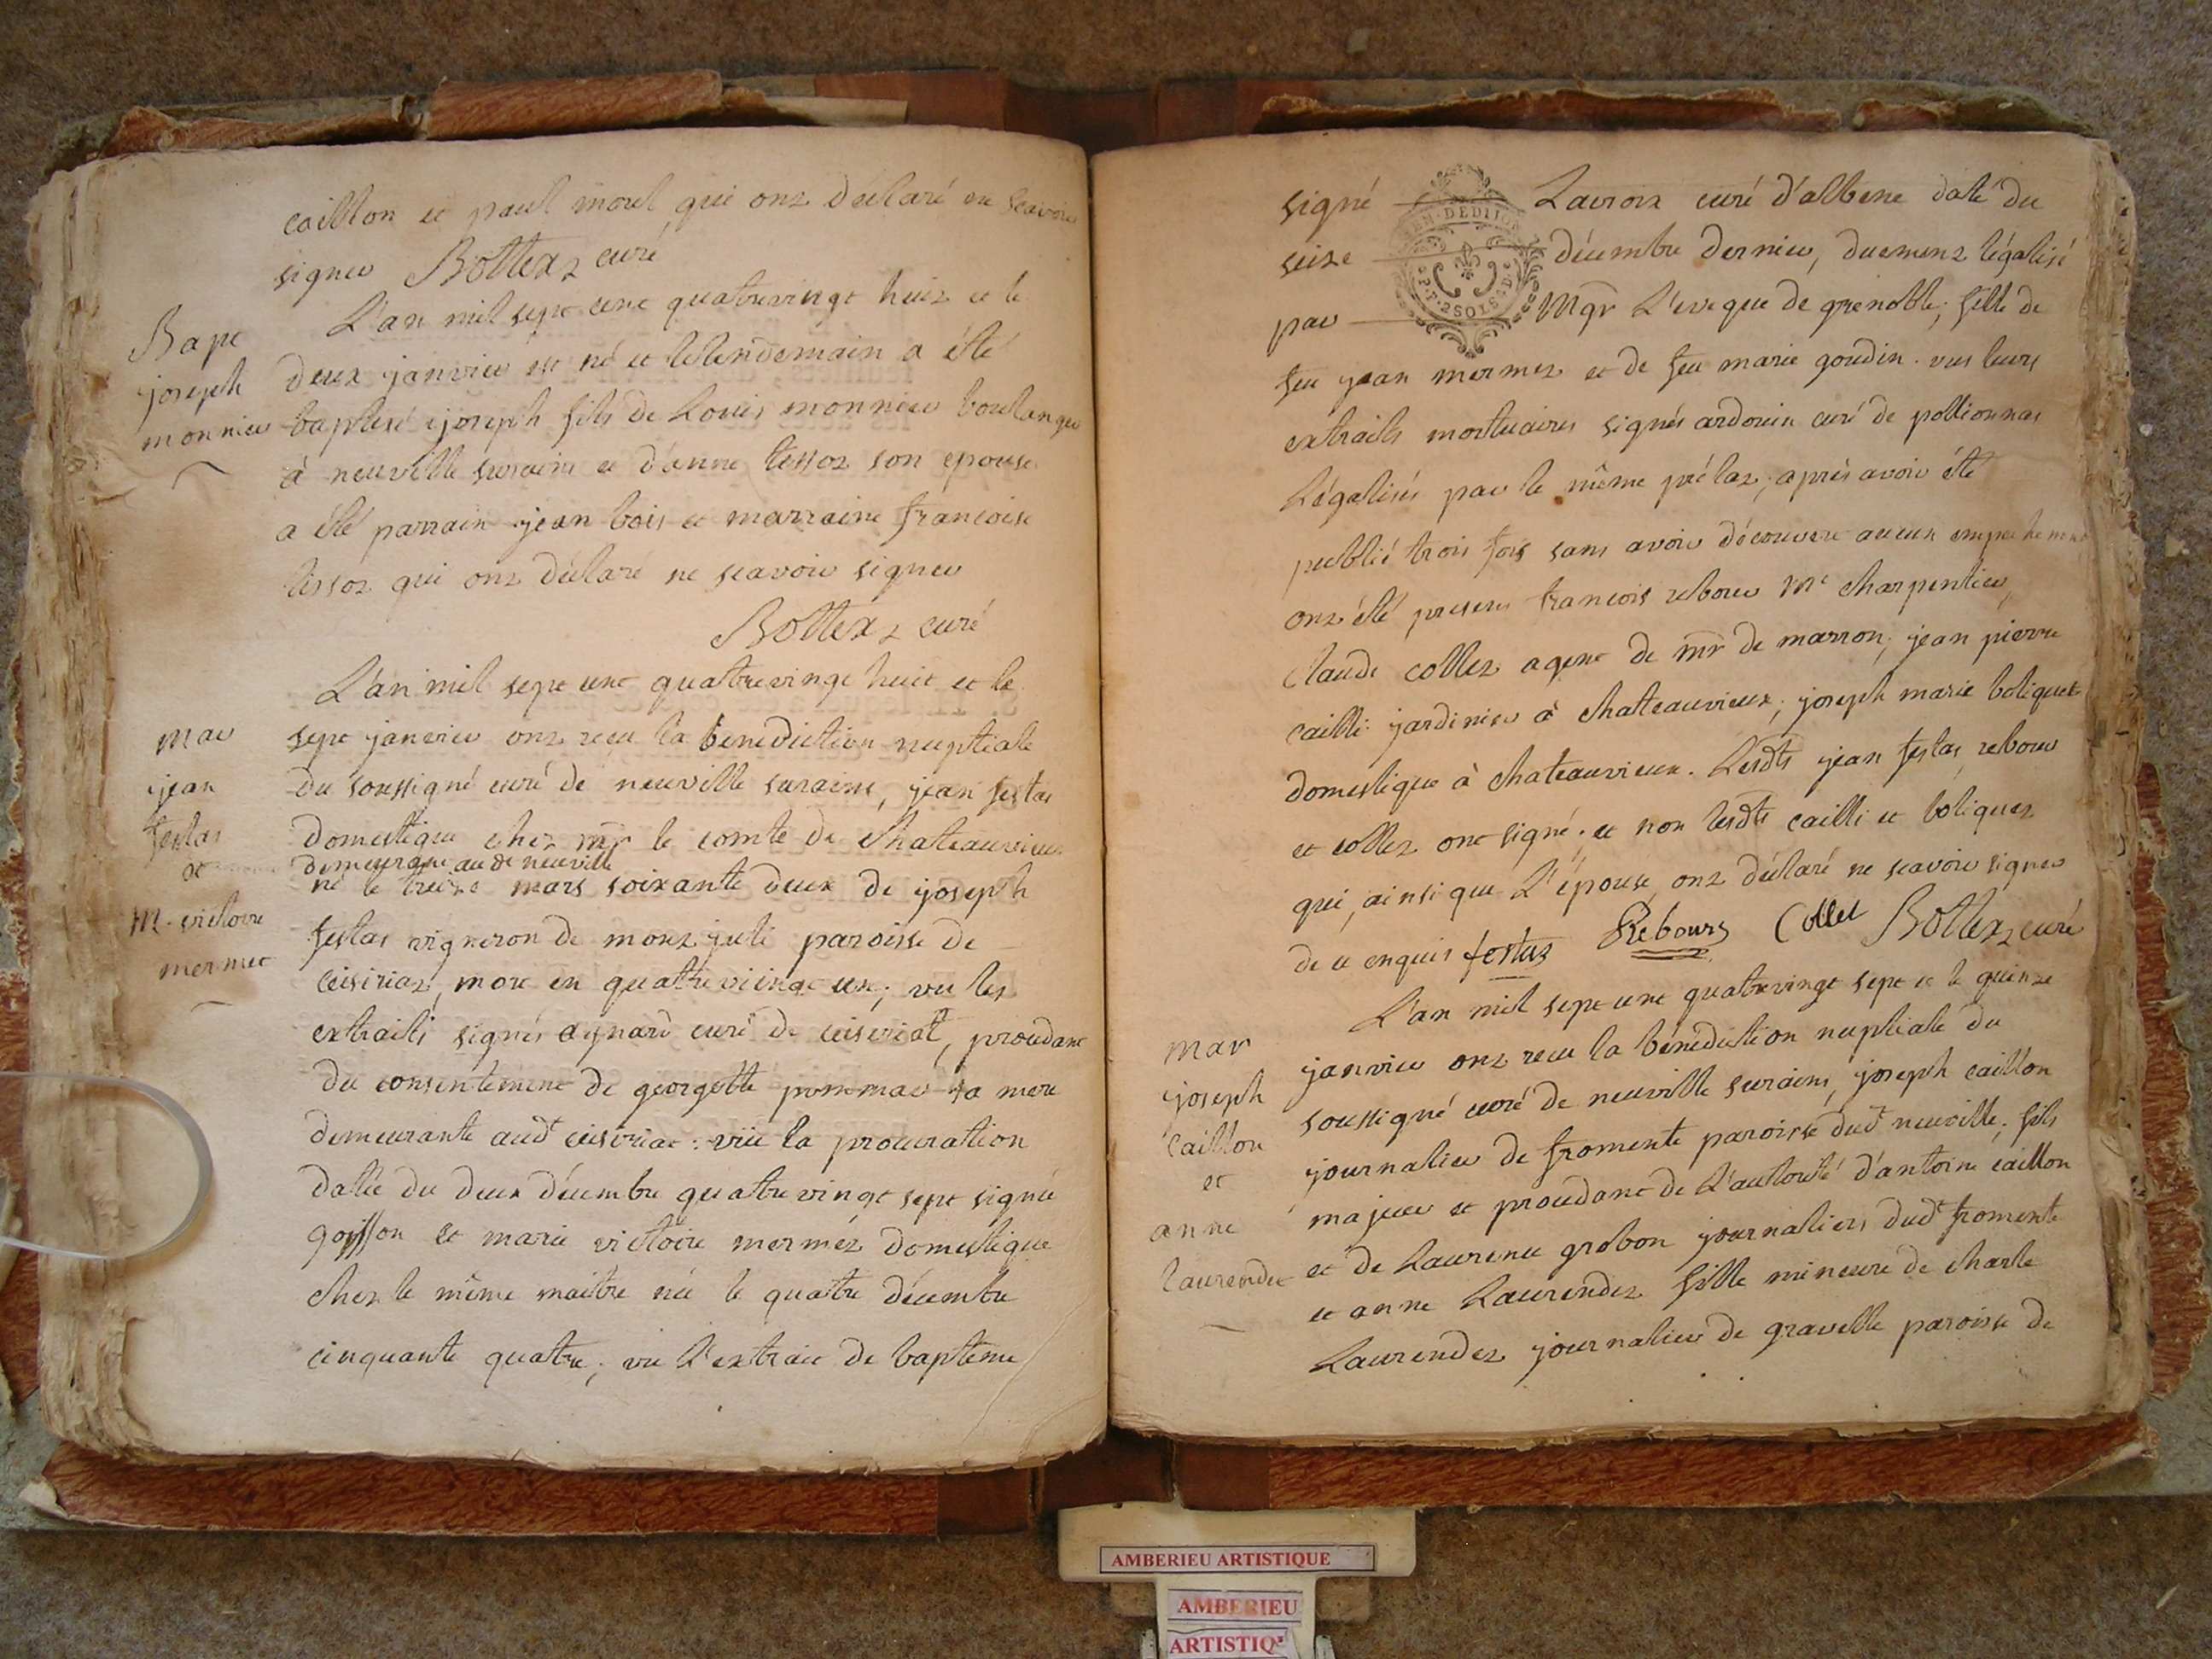 caillon et paul morel qui ont déclaré ne scavoir
signer Bottex curé
Bapt
joseph
monnier
L'an mil sept cent quatrevingt huit et le
deux janvier est né et le lendemain a été
baptisé joseph fils de Louis monnier boulanger
à neuville surains et d'anne tissot son epouse
a été parrain jean bois et marraine françoise
tissot qui ont déclaré ne scavoir signer
Bottex curé
mar
jean
festas
et
M. victoire
mermet
L'an mil sept cent quatrevingt huit et le
sept janvier ont reçu la bénédiction nuptiale
du soussigné curé de neuville surains, jean festas
domestique chez mr le comte de chateauvieux
demeurant aud neuville
né le treize mars soixante deux de joseph
festas vigneron de mont juli paroisse de
ceisiriat, mort en quatrevingt un; vu les
extraits signés aynard curé de ceiseriat, procedant
du consentement de georgette pommat sa mere
demeurante audt ceisiriat: vüe la procuration
datée du deux décembre quatrevingt sept signée
goiffon et marie victoire mermet domestique
chez le même maitre née le quatre décembre
cinquante quatre; vu l'extrait de baptême
signé Lacroix curé d'albene daté du
seize décembre dernier, duement légalisé
par Mgr L'eveque de grenoble; fille de
feu jean mermet et de feu marie goudin. vus leurs
extraits mortuaires signés ardouin curé de pollionnas
Légalisés par le même prélat; après avoir été
publié trois fois sans avoir découvert aucun empechement
ont été presens françois rebour Me charpentier,
Claude collet agent de mr de marron; jean pierre
cailli jardinier à chateauvieux; joseph marie boliquet
domestique à chateauvieux. Lesdts jean festas, rebour
et collet ont signé; et non lesdts cailli et boliquet
qui, ainsi que L'épouse, ont déclaré ne scavoir signer
de ce enquis festas Rebours Collet Bottex curé
mar
joseph
caillon
et
anne
laurendet
L'an mil sept cent quatrevingt sept et le quinze
janvier ont recu la bénédiction nuptiale du
soussigné curé de neuville surains, joseph caillon
journalier de fromente paroisse dudt neuville, fils
majeur et procedant de L'autorité d'antoine caillon
et de Laurence grobon journaliers dudt fromente
et anne Laurendet fille mineure de charle
Laurendet journalier de gravelle paroisse de
2 SOLS
AMBERIEU ARTISTIQUE
AMBERIEU
ARTISTIQ